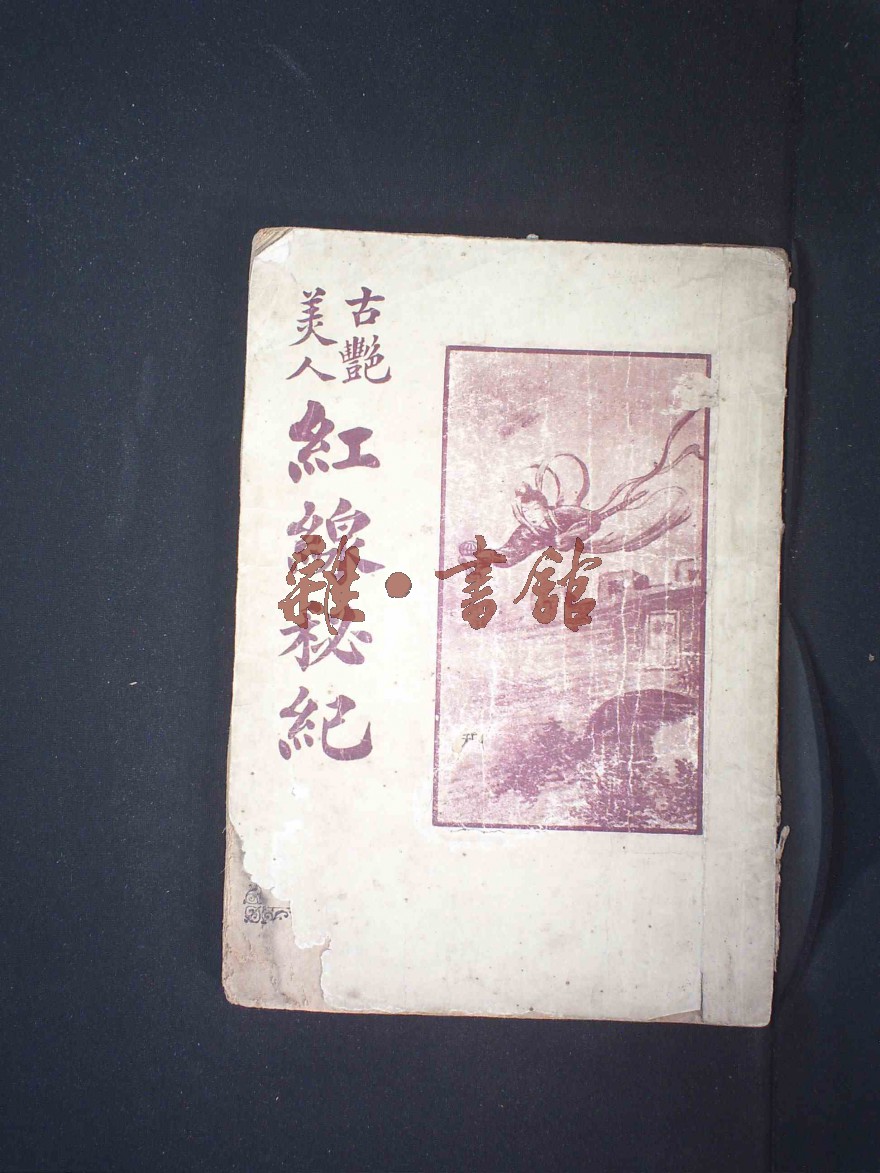 古艷
美人
紅線秘紀
雜·書館